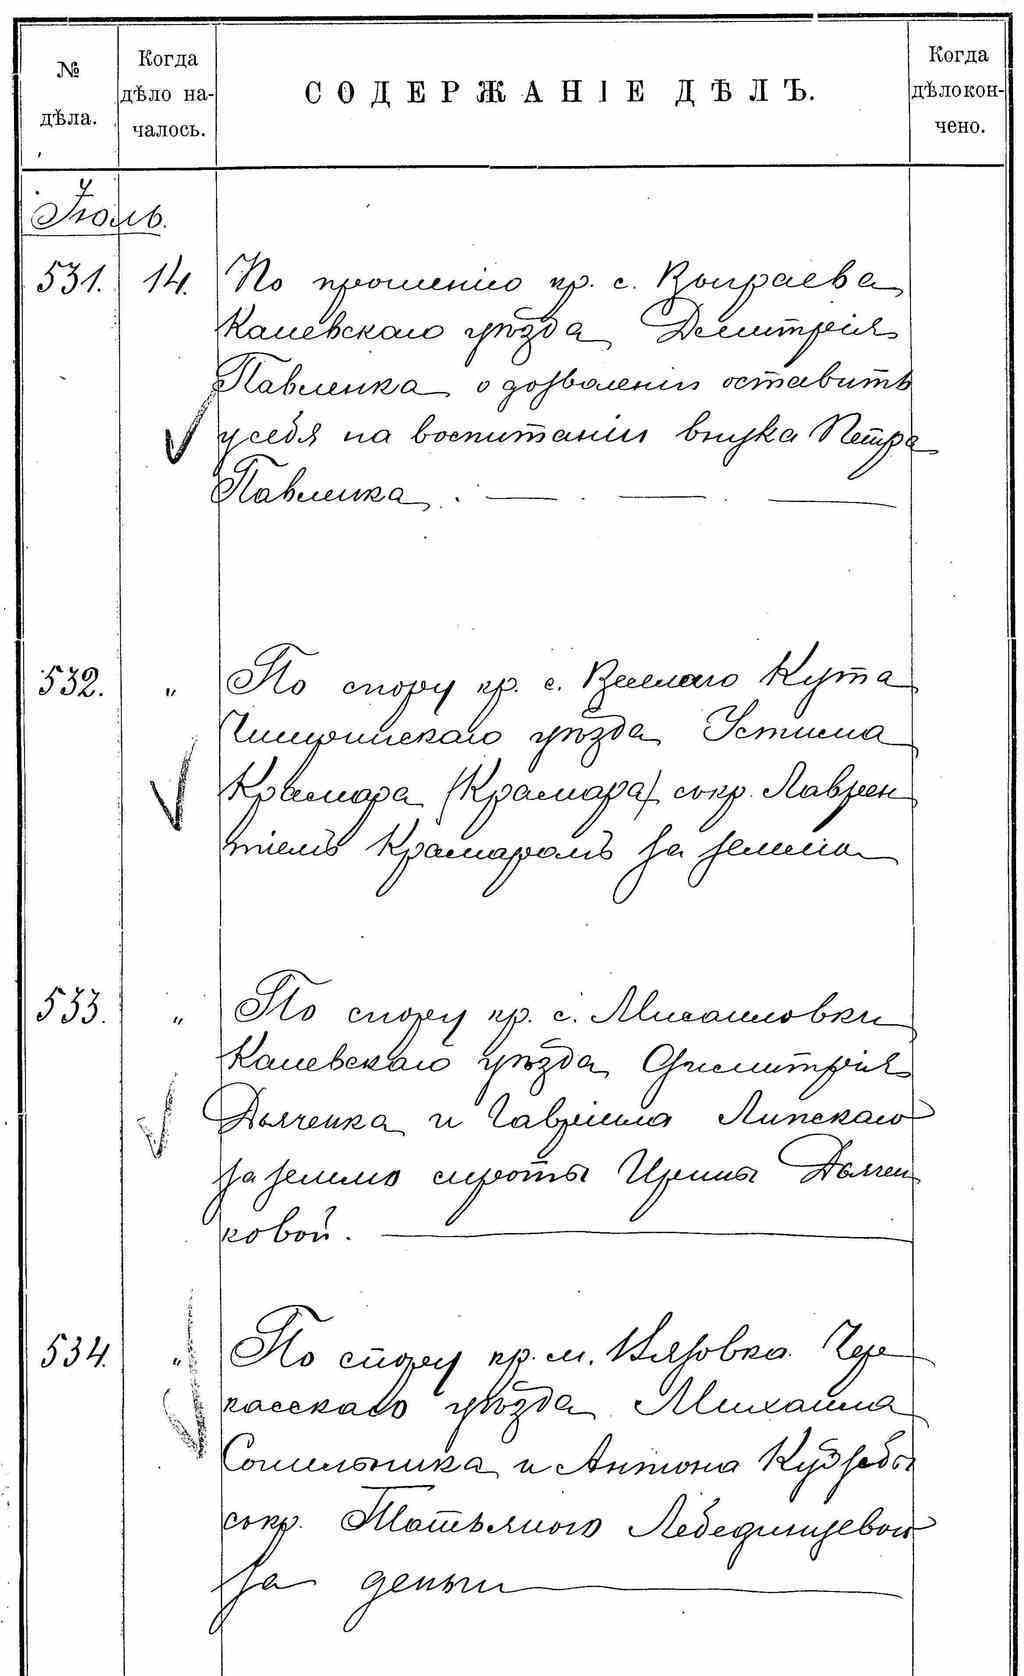 № дѣла.
Когда дѣло на-
чалось.
СОДЕРЖАНІЕ ДѢЛЪ.
Когда
дѣло кон-
чено.
Іюль.
531. 14. По прошенію кр. с. Выграева
Каневскаго уѣзда Димитрія
Павленка о дозволеніи оставить
у себя на воспитаніи внука Петра
Павленка.
532. „ По спору кр. с. Веселаго Кута
Чигиринскаго уѣзда Устима
Крамара (Крамара) с кр. Лаврен
тіемъ Крамаромъ за землю
533. „ По спору кр. с.
Каневскаго уѣзда Димитрія
Дьяченка и Гавріила Липскаго
за землю сироты Ирины Дьячен
ковой.
534. „ По спору кр. м. Вязовка Чер
касскаго уѣзда Михаила
и Антона
с кр. Татьяною Лебединцевою
за деньги